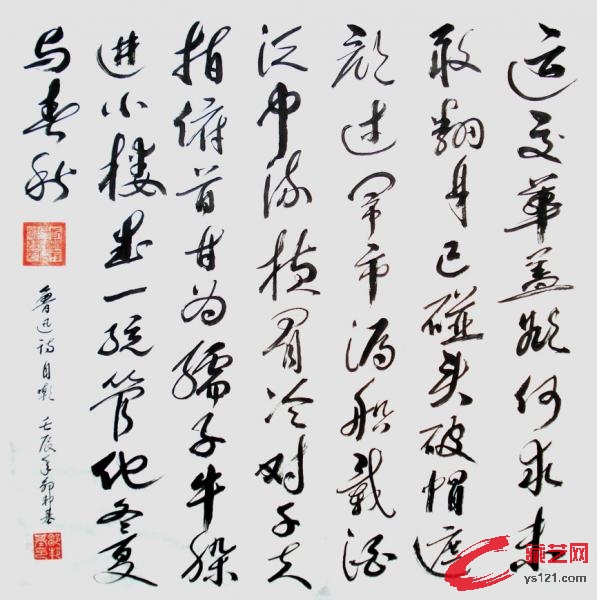 运交華盖欲何求未
敢翻身已碰头破帽遮
颜过闹市漏船载酒
泛中流横眉冷对千夫
指俯首甘为孺子牛躲
进小楼成一统管他冬夏
与春秋
鲁迅诗自嘲 壬辰年
藏艺网
ys121.com